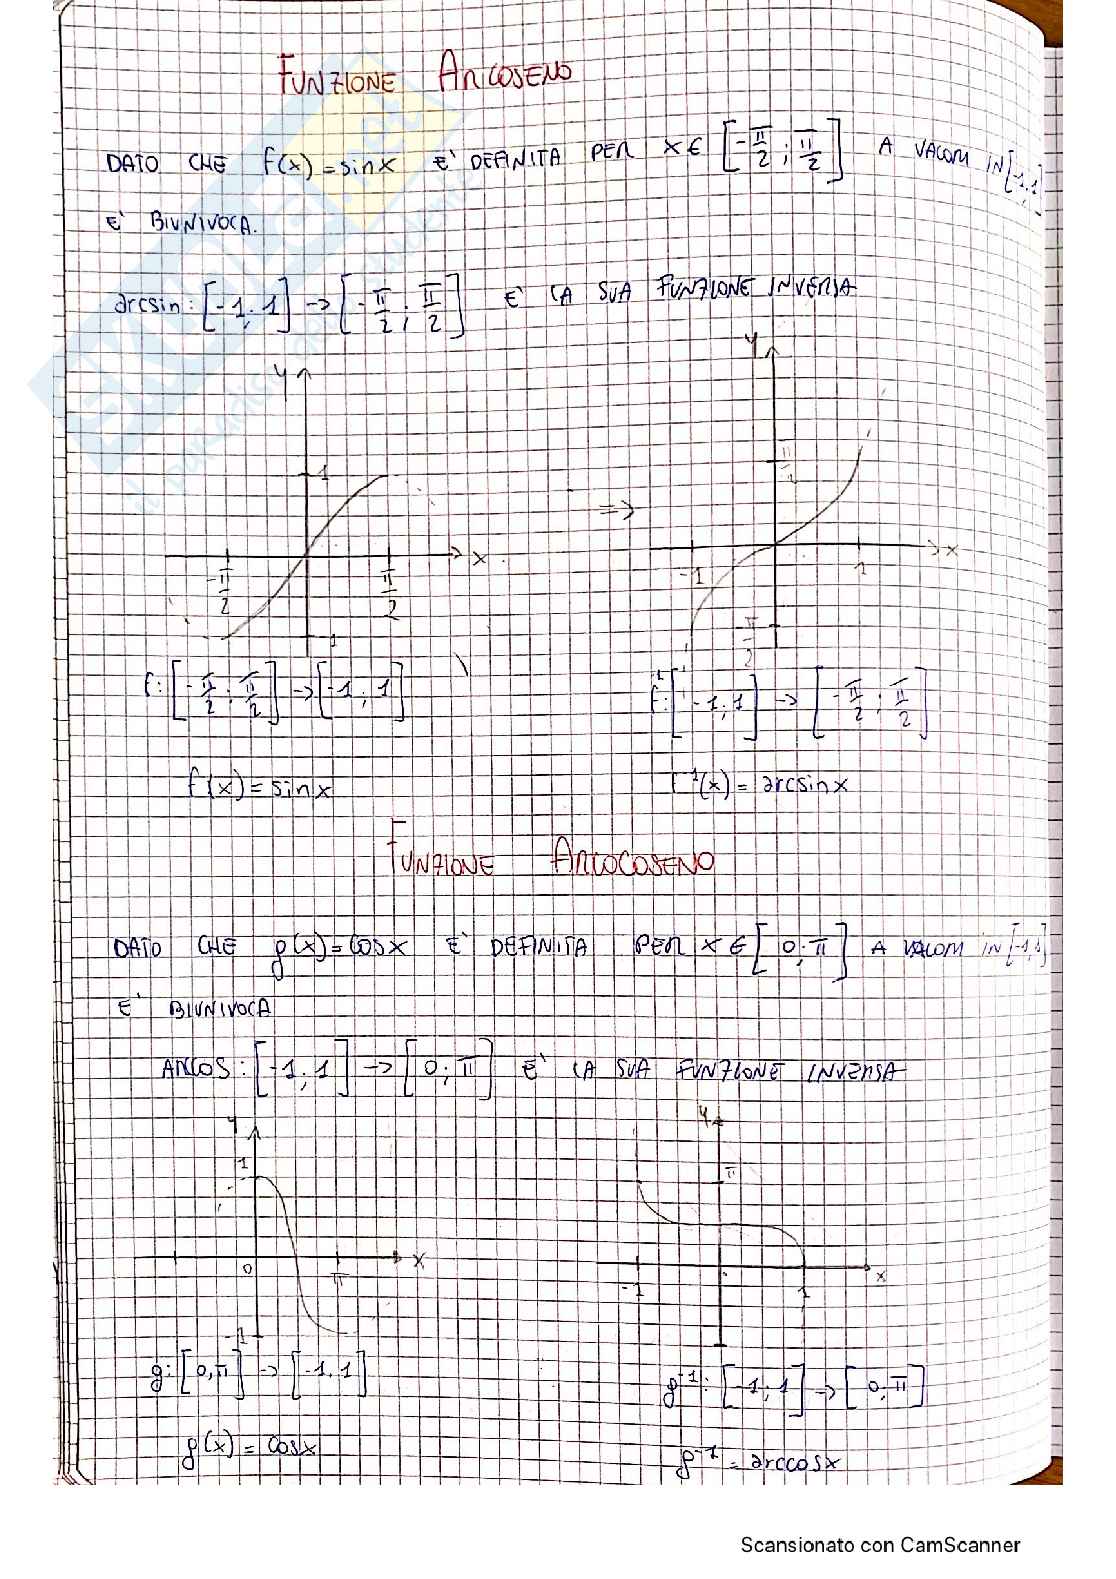 FUNZIONE ARCOSENO
DATO CHE f(x)=sinx E' DEFINITA PER X∈ [-π/2 ; π/2] A VALORI IN [-1,1]
E' BIUNIVOCA.
arcsin: [-1;1] -> [-π/2 ; π/2] E' LA SUA FUNZIONE INVERSA
y
1
x
-π/2
π/2
1
=>
y
π/2
x
-1
1
-π/2
f: [-π/2 ; π/2] -> [-1 ; 1]
f⁻¹: [-1;1] -> [-π/2 ; π/2]
f(x)=sinx
f⁻¹(x)= arcsinx
FUNZIONE ARCOCOSENO
DATO CHE g(x)=cosx E' DEFINITA PER X∈ [0;π] A VALORI IN [-1,1]
E' BIUNIVOCA
ARCOS: [-1;1] -> [0;π] E' LA SUA FUNZIONE INVERSA
y
1
0
π
x
-1
y
π
-1
1
x
g: [0,π] -> [-1,1]
g⁻¹: [-1;1] -> [0;π]
g(x)= cosx
g⁻¹ = arccosx
Scansionato con CamScanner